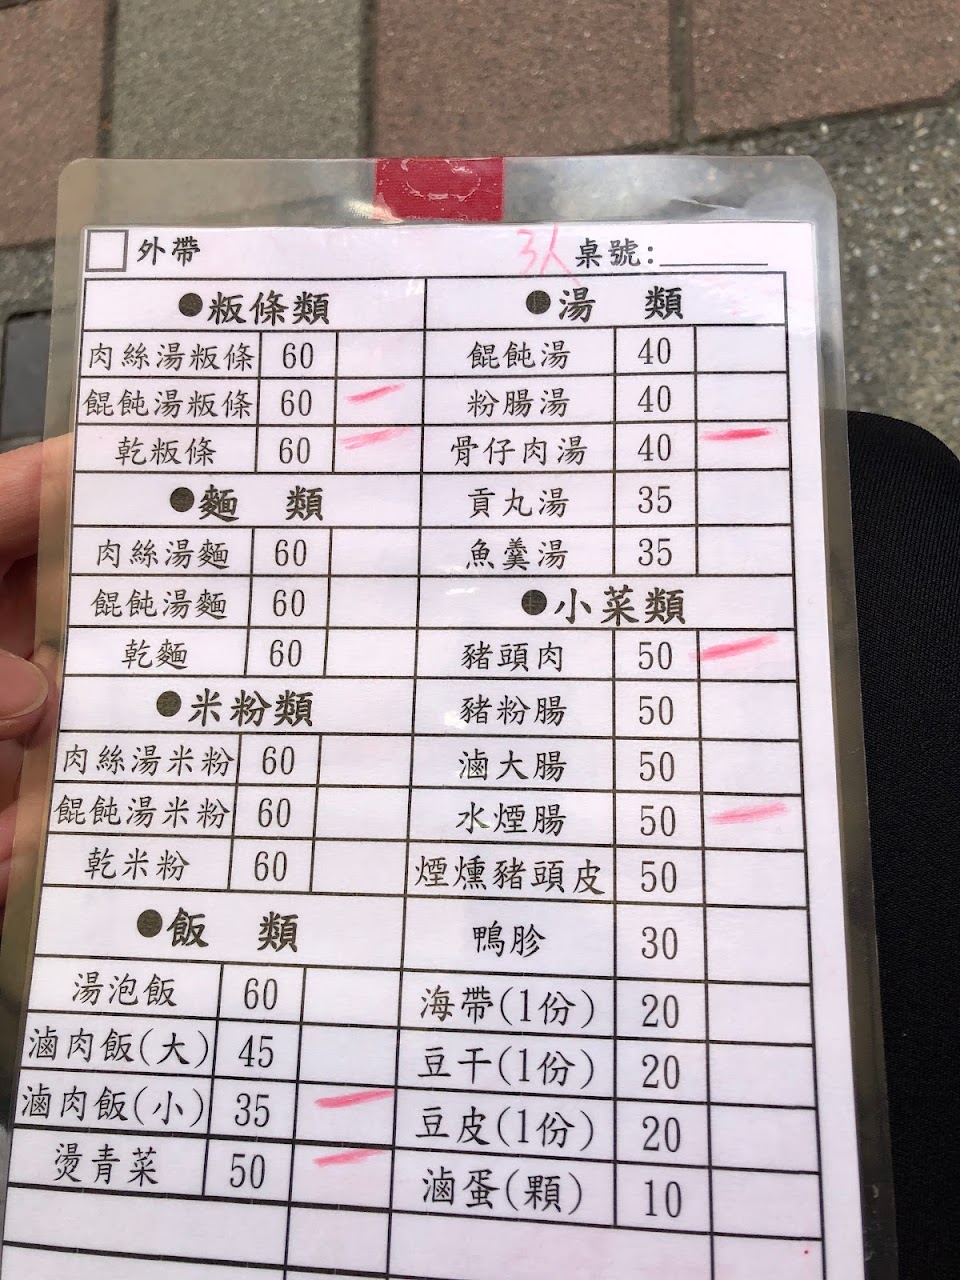 外帶 3人 桌號:
●粄條類
肉絲湯粄條 60
餛飩湯粄條 60
乾粄條 60
●麵 類
肉絲湯麵 60
餛飩湯麵 60
乾麵 60
●米粉類
肉絲湯米粉 60
餛飩湯米粉 60
乾米粉 60
●飯 類
湯泡飯 60
滷肉飯(大) 45
滷肉飯(小) 35
燙青菜 50
●湯 類
餛飩湯 40
粉腸湯 40
骨仔肉湯 40
貢丸湯 35
魚羹湯 35
●小菜類
豬頭肉 50
豬粉腸 50
滷大腸 50
水煙腸 50
煙燻豬頭皮 50
鴨胗 30
海帶(1份) 20
豆干(1份) 20
豆皮(1份) 20
滷蛋(顆) 10